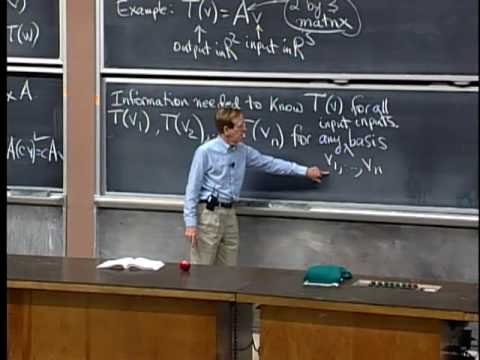 T(w)
x A
A(cv)=cAv
Example: T(v) = Av
2 by 3
matrix
output in R² input in R³
Information needed to know T(v) for all
inputs.
T(v₁), T(v₂), T(vₙ) for any basis
input
v₁, .., vₙ